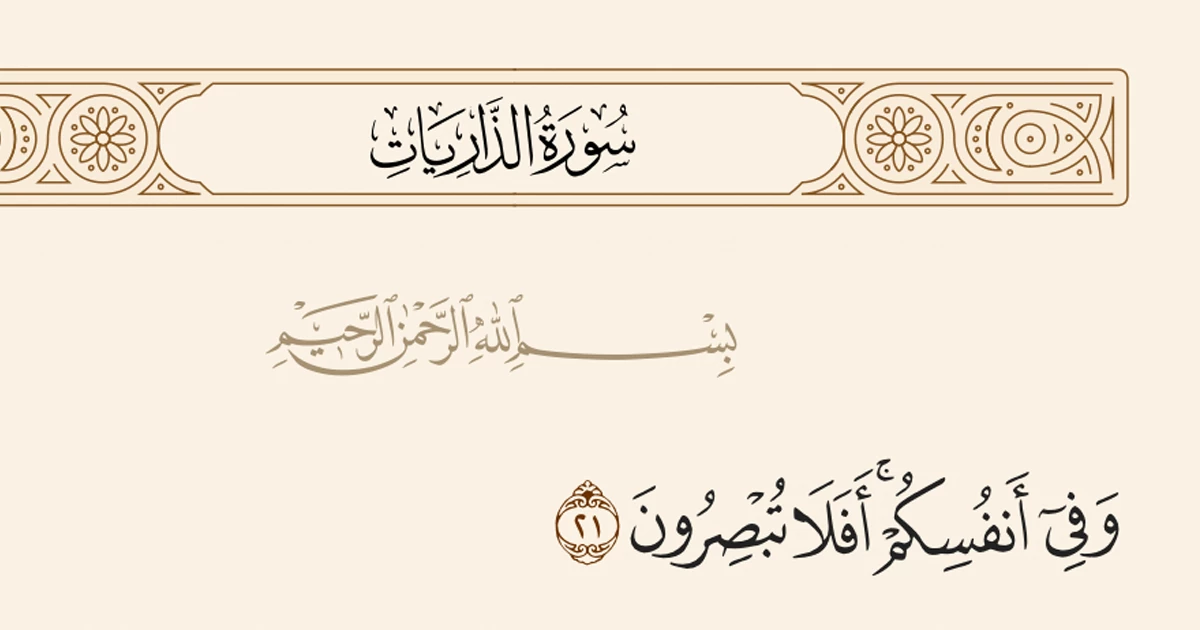 سُورَةُ الذَّارِيَاتِ
بِسْمِ ٱللَّهِ ٱلرَّحْمَٰنِ ٱلرَّحِيمِ
وَفِىٓ أَنفُسِكُمْ ۚ أَفَلَا تُبْصِرُونَ ٢١